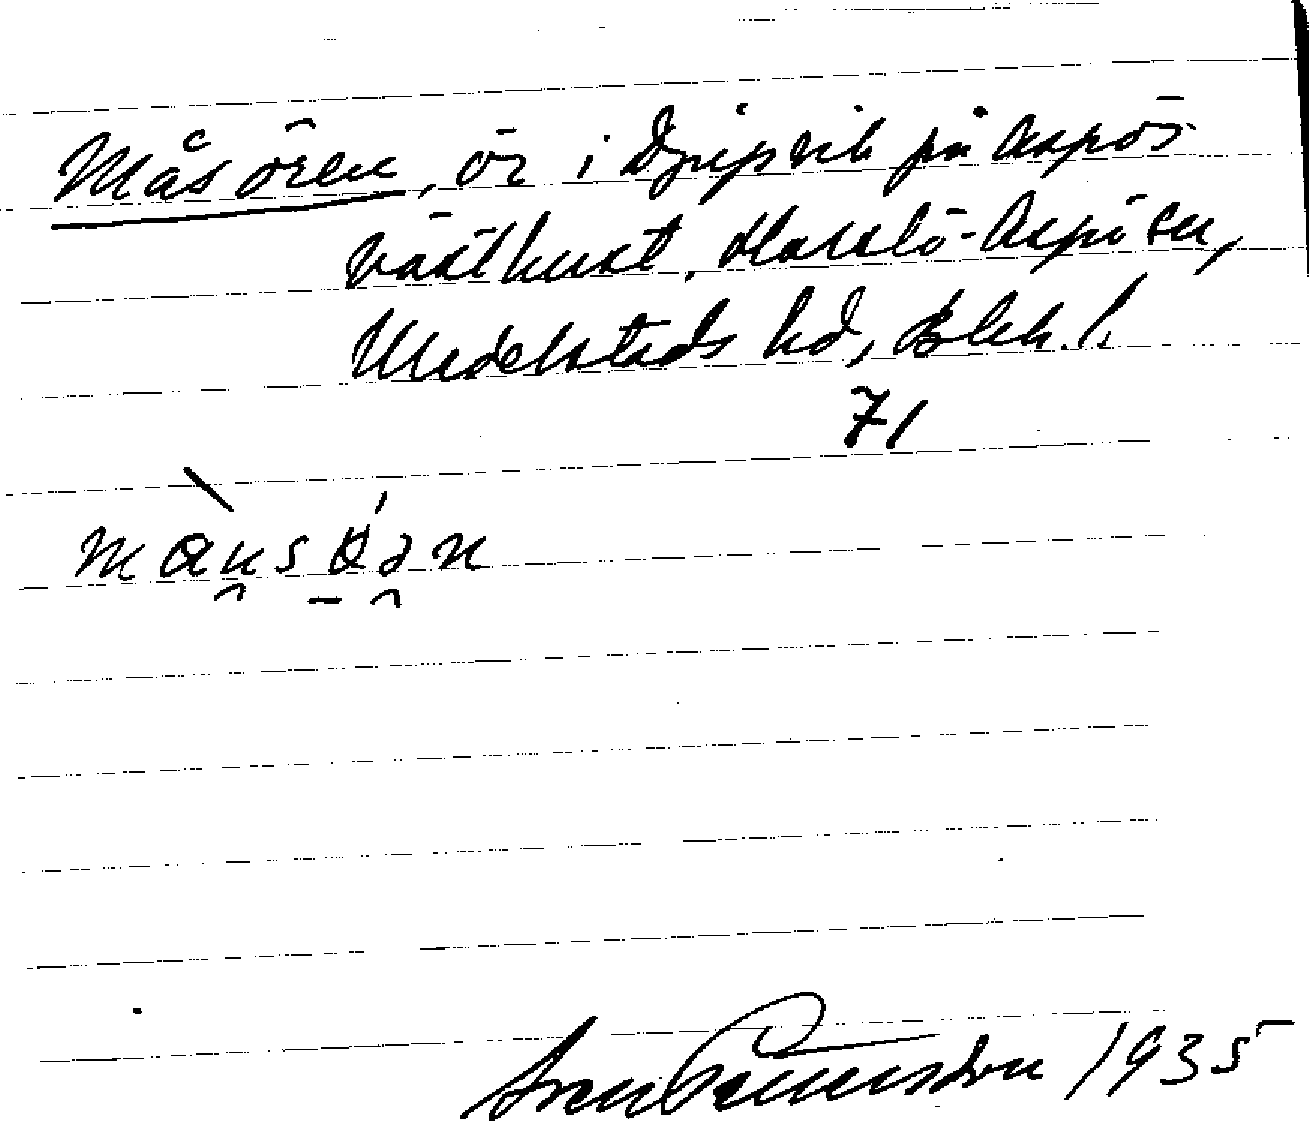 Måsören, ör i Djupvik på Aspös
västkust. Hasslö-Aspö sn,
Medelstads hd, Blek. l.
71
1935